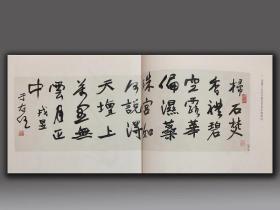 掃石焚
香禮碧
空露華
偏濕蘂
珠宮如
何說得
天壇上
萬里無
雲月正
中
于右任